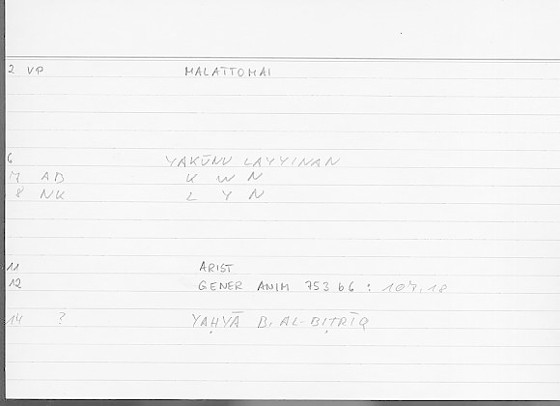 2 VP MALATTOMAI
6 YAKŪNU LAYYINAN
7 AD K W N
8 NK L Y N
11 ARIST
12 GENER ANIM 753 b6 : 107,18
14 ? YAḤYĀ B. AL-BIṬRĪQ